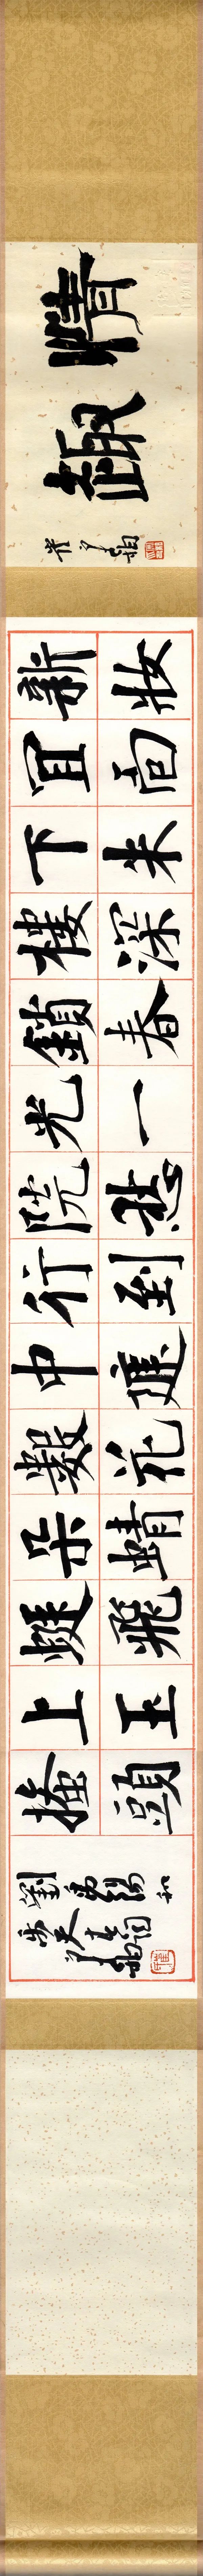 情趣
新妝
宜面
下朱
樓深
鎖春
光一
院愁
行到
中庭
數花
朵蜻
蜓飛
上玉
搔頭
劉禹錫